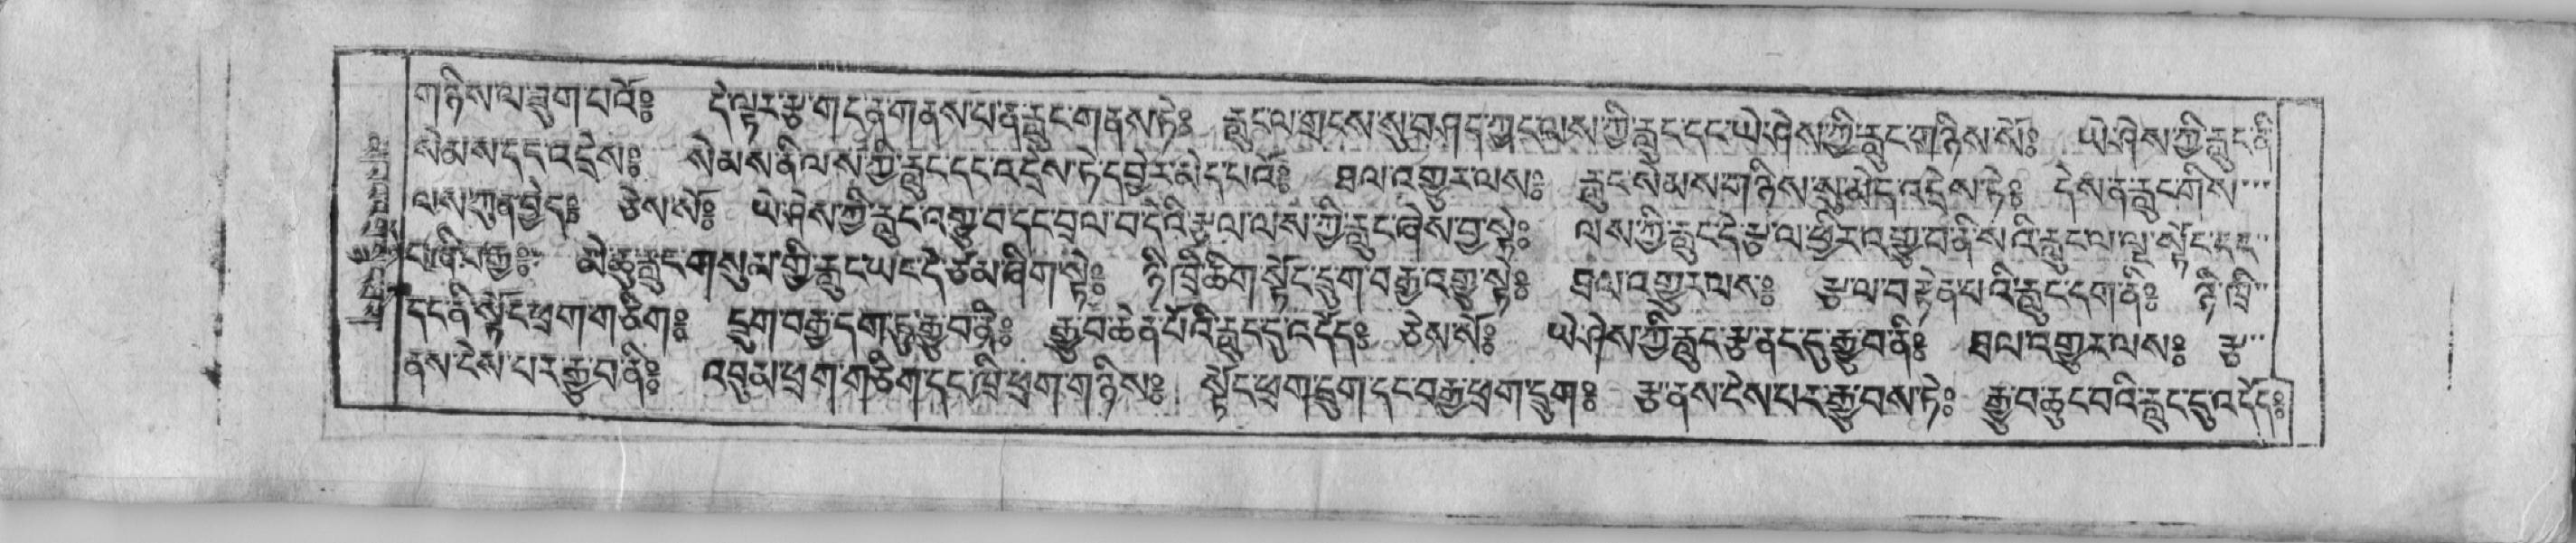 གཉིས་ལ་ཟུག་པའོ༔ དེ་ལྟར་རྩ་གདན་གནས་པ་ན་རླུང་གནས་ཏེ༔ རླུང་ལ་གྲངས་སུ་བཤད་ཀྱང་ལས་ཀྱི་རླུང་དང་ཡེ་ཤེས་ཀྱི་རླུང་གཉིས་སོ༔ ཡེ་ཤེས་ཀྱི་རླུང་ནི
སེམས་དང་འདྲེས༔ སེམས་ནི་ལས་ཀྱི་རླུང་དང་འདྲེས་ཏེ་དབྱེར་མེད་པའོ༔ ཐལ་འགྱུར་ལས༔ རླུང་སེམས་གཉིས་སུ་མེད་འདྲེས་ཏེ༔ དེས་ན་རླུང་གིས
ལས་ཀུན་བྱེད༔ ཅེས་སོ༔ ཡེ་ཤེས་ཀྱི་རླུང་འགྱུ་བ་དང་བྲལ་བ་དེའི་རྩལ་ལས་ཀྱི་རླུང་ཞེས་བྱ་སྟེ༔ ལས་ཀྱི་རླུང་དེ་རྩ་ལ་ཕྱིར་འགྱུ་བ་ནི་སའི་རླུང་ལ་ལྔ་སྟོང་དང
ཉི་བརྒྱ༔ མེ་ཆུ་རླུང་གསུམ་གྱི་རླུང་ཡང་དེ་ཙམ་ཞིག་སྟེ༔ ཉི་ཁྲི་ཆིག་སྟོང་དྲུག་བརྒྱ་འགྱུ་སྟེ༔ ཐལ་འགྱུར་ལས༔ རྩ་ལ་བརྟེན་པའི་རླུང་དག་ནི༔ ཉི་ཁྲི
དང་ནི་སྟོང་ཕྲག་གཅིག༔ དྲུག་བརྒྱ་དག་ཏུ་རྒྱུ་བ་ནི༔ རྒྱུ་བ་ཆེན་པོའི་རླུང་དུ་འདོད༔ ཅེས་སོ༔ ཡེ་ཤེས་ཀྱི་རླུང་རྩ་ནང་དུ་རྒྱུ་བ་ནི༔ ཐལ་འགྱུར་ལས༔ རྩ
ནས་ངེས་པར་རྒྱུ་བ་ནི༔ འབུམ་ཕྲག་གཅིག་དང་ཁྲི་ཕྲག་གཉིས༔ སྟོང་ཕྲག་དྲུག་དང་བརྒྱ་ཕྲག་དྲུག༔ རྩ་ནས་ངེས་པར་རྒྱུ་བས་ཏེ༔ རྒྱུ་བ་ཆུང་བའི་རླུང་དུ་འདོད༔